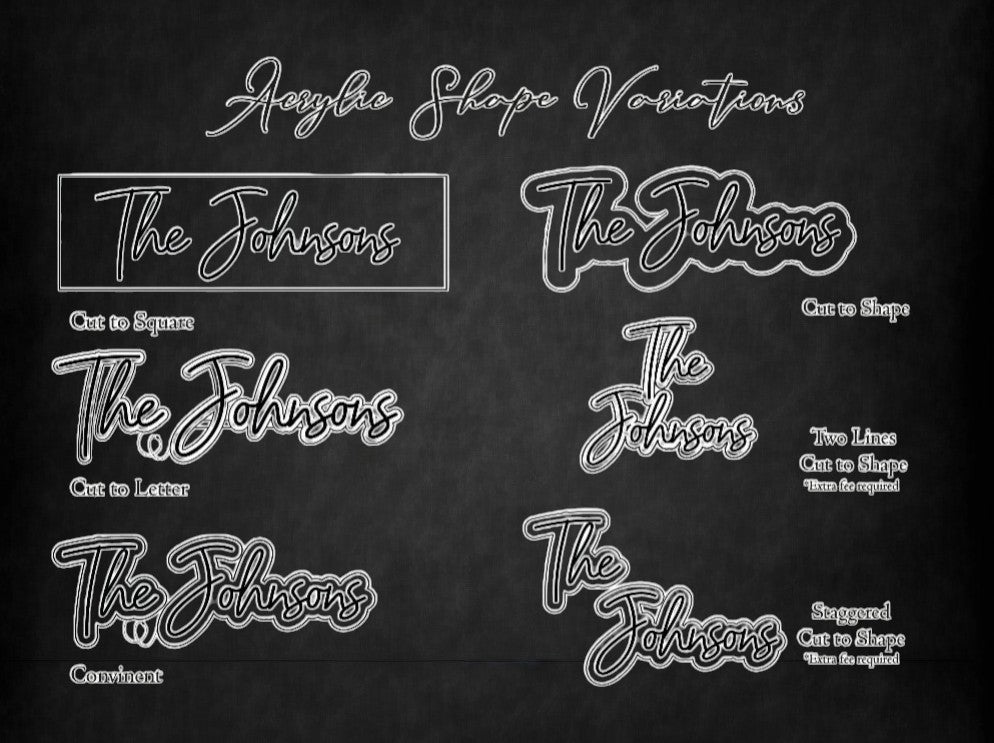 Acrylic Shape Variations
The Johnsons
Cut to Square
The Johnsons
Cut to Shape
The Johnsons
Cut to Letter
The
Johnsons
Two Lines
Cut to Shape
*Extra fee required
The Johnsons
Convinent
The
Johnsons
Staggered
Cut to Shape
*Extra fee required